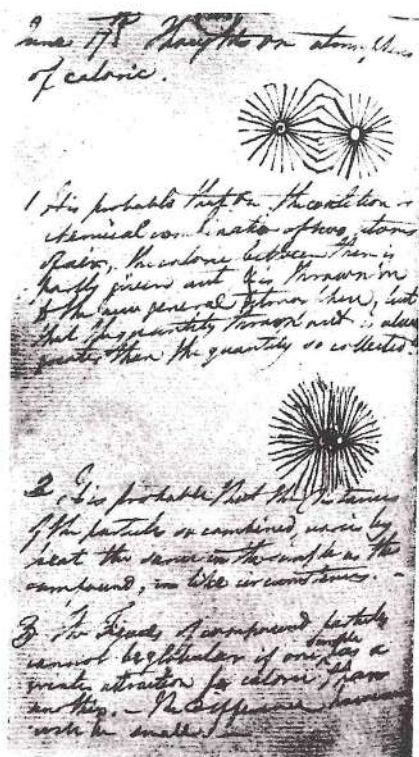 June 17th Thoughts on
of caloric.
1 It is probable that on the coalition or
chemical combination of two atoms
of air, the caloric between them is
partly given out & is thrown
to the new general atmosphere, but
that the quantity thrown out is always
greater than the quantity so collected
2, It is probable that the distances
of the particles so combined, varies by
heat the same in the simple as the
compound, in like circumstances. -
3, The figures of compound particles
cannot be globular if one simple has a
greater attraction for caloric than
another. - The difference however
will be small.